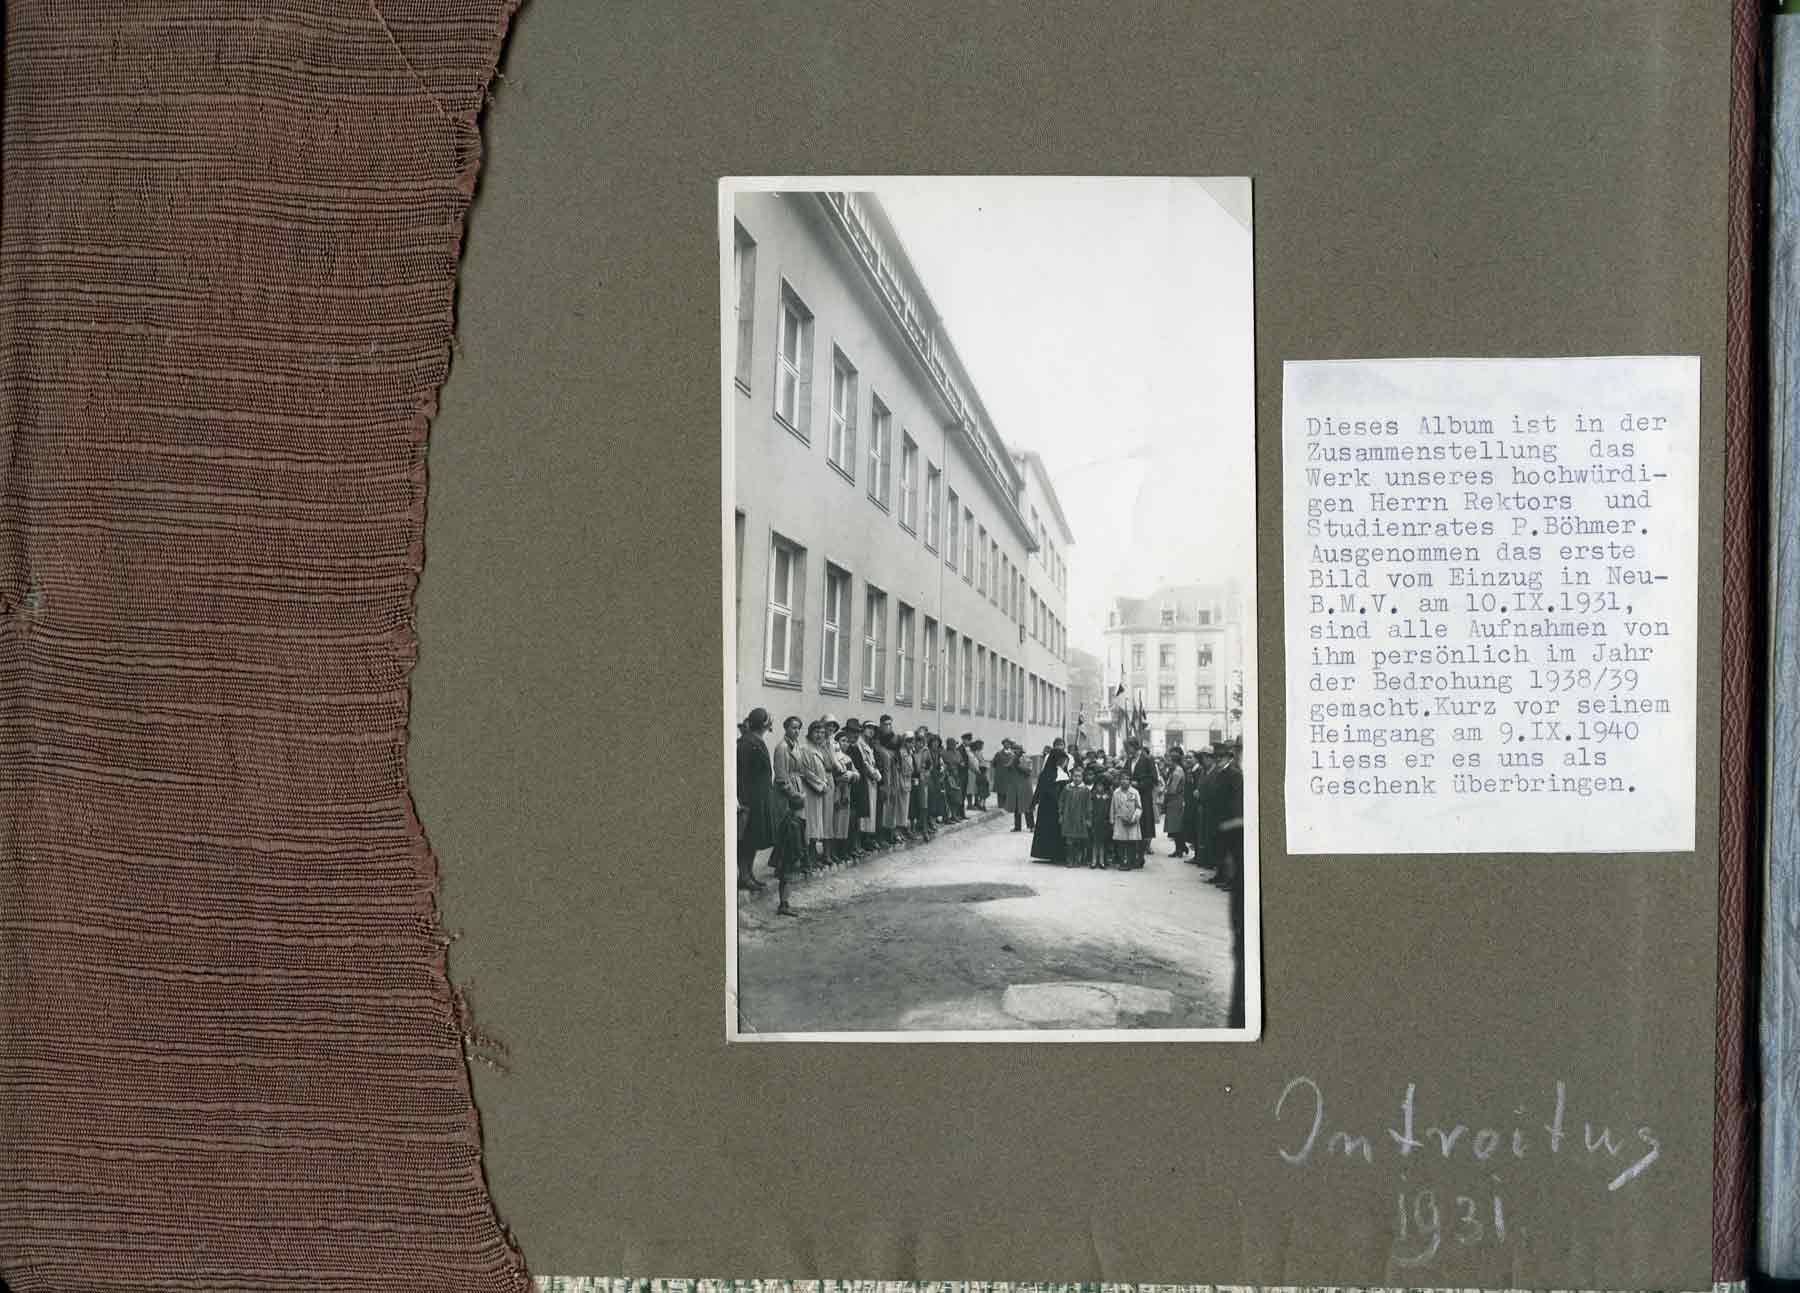 Dieses Album ist in der
Zusammenstellung das
Werk unseres hochwürdi-
gen Herrn Rektors und
Studienrates P.Böhmer.
Ausgenommen das erste
Bild vom Einzug in Neu-
B.M.V. am 10.IX.1931,
sind alle Aufnahmen von
ihm persönlich im Jahr
der Bedrohung 1938/39
gemacht.Kurz vor seinem
Heimgang am 9.IX.1940
liess er es uns als
Geschenk überbringen.
Introitus
1931.